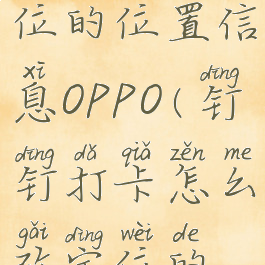 位的位置信
xī dīng
息OPPO(钉
dīng dǎ qiǎ zěn me
钉打卡怎么
gǎi dìng wèi de
改定位的